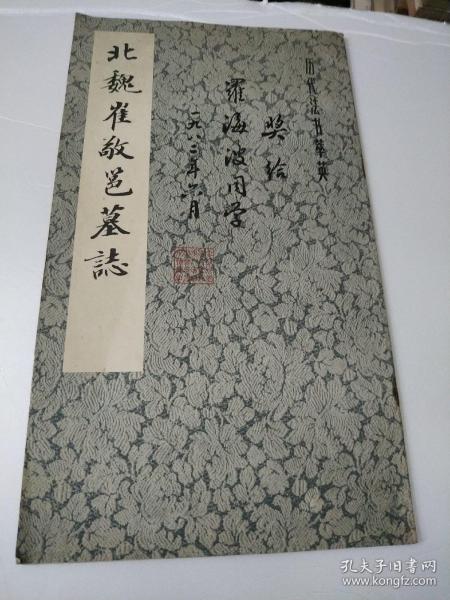 历代法书萃英
奖给
罹海波同学
一九八三年六月
北魏崔敬邕墓誌
孔夫子旧书网
www.kongfz.com